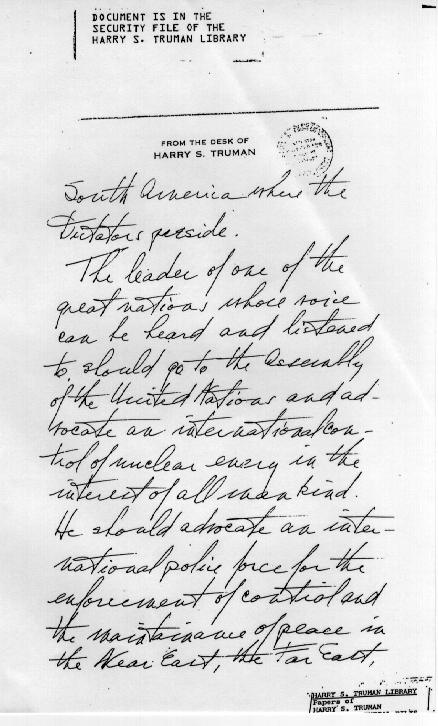 DOCUMENT IS IN THE
SECURITY FILE OF THE
HARRY S. TRUMAN LIBRARY
FROM THE DESK OF
HARRY S. TRUMAN
South America where the
Dictators preside.
The leader of one of the
great nations whose voice
can be heard and listened
to, should go to the Assembly
of the United Nations and ad-
vocate an international con-
trol of nuclear energy in the
interest of all mankind.
He should advocate an inter-
national police force for the
enforcement of control and
the maintainance of peace in
the Near East, the Far East,
HARRY S. TRUMAN LIBRARY
Papers of
HARRY S. TRUMAN